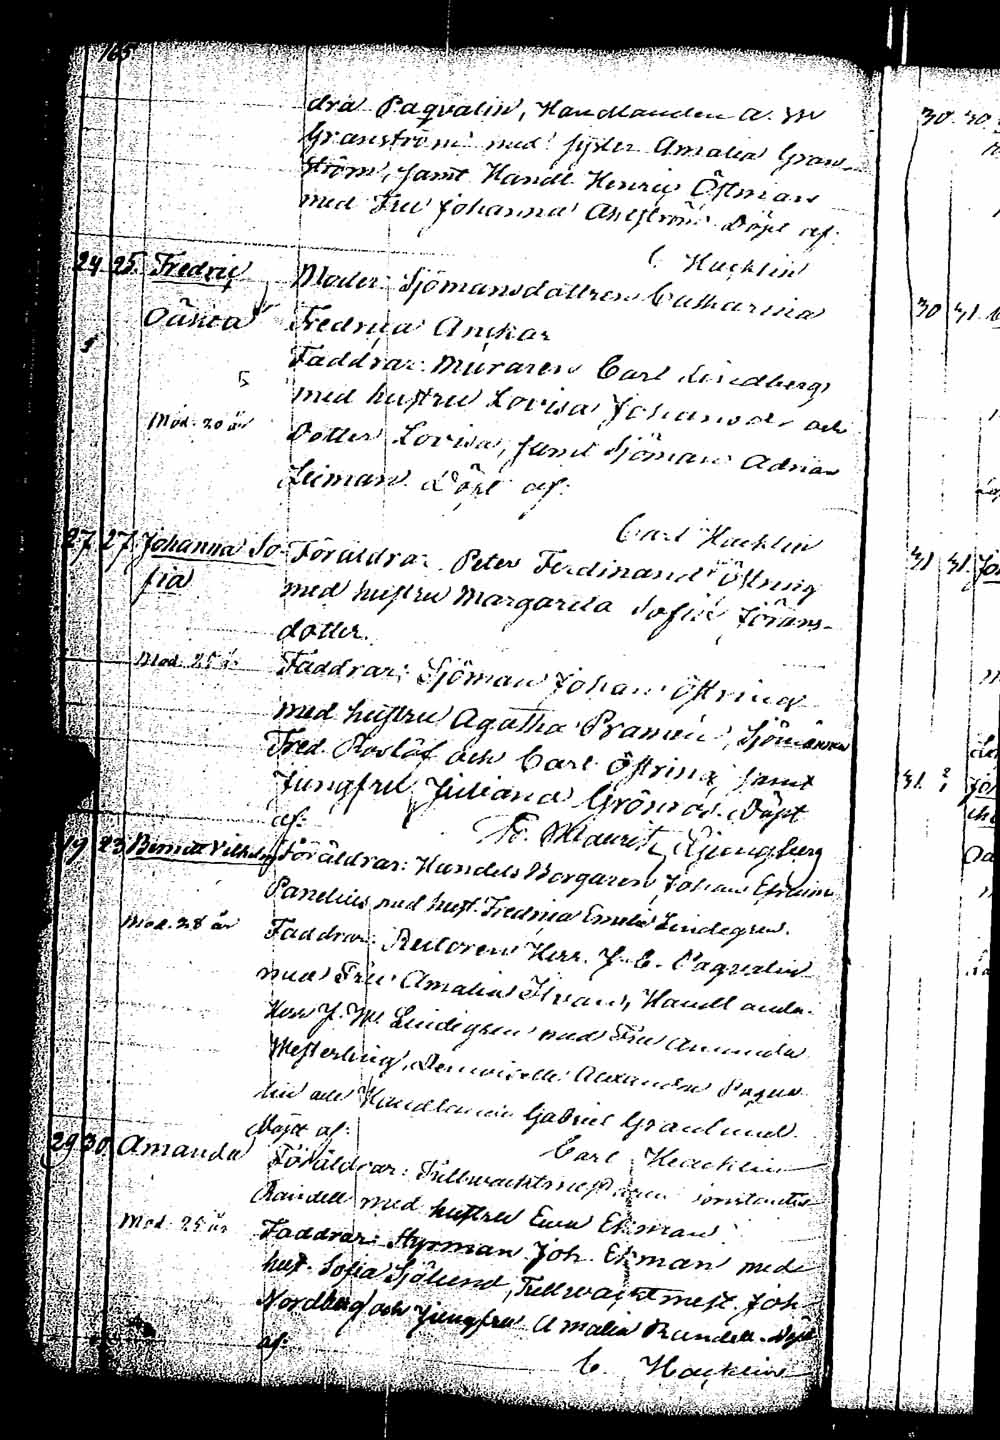 165
dra Paqvalin, Handlanden A. W
Granström med syster Amalia Gran-
ström, samt Handl. Henric Östman
med Fru Johanna Ahlström. Döpt af:
C. Hacklin
24 25. Fredric
Moder: Sjömansdottren Catharina
Oäkta
Fredrica Anckar
Faddrar: Muraren Carl Lindberg
med hustru Lovisa Johansdr och
Mod. 20 år
Dotter Lovisa, samt Sjöman Adrian
Leiman. Döpt af:
Carl Hacklin
27 27 Johanna So-
fia
Föräldrar: Peter Ferdinand Östring
med hustru Margareta Sofia Jörans-
dotter.
Mod. 25 år
Faddrar: Sjöman Johan Östring
med hustru Agatha Bramén, Sjömännen
Fred. Roslöf och Carl Östring samt
Jungfru Juliana Grönroos. Döpt
af: Fr. Maurits Ljungberg
19 23 Bernt Vilhelm
Föräldrar: Handels Borgaren Johan Efraim
Panelius med hust. Fredrica Emelie Lindegren.
Mod. 28 år
Faddrar: Rectoren Herr J. E. Paqvalin
med Fru Amalia Ilvan, Handlanden
Herr J. W. Lindegren med Fru Amanda
Westerling, Demoiselle Alexandra Paqva-
lin och Handlanden Gabriel Granlund.
Döpt af:
Carl Hacklin
29 30 Amanda
Föräldrar: Tullwachtmästaren Constantin
Randell med hustru Eva Ekman
Mod. 25 år
Faddrar: Styrman Joh. Ekman med
hust. Sofia Sjölund, Tullwachtmest. Joh
Nordberg och Jungfru Amalia Randell. Döpt
af:
C. Hacklin
30 30
30 31
31 31
31